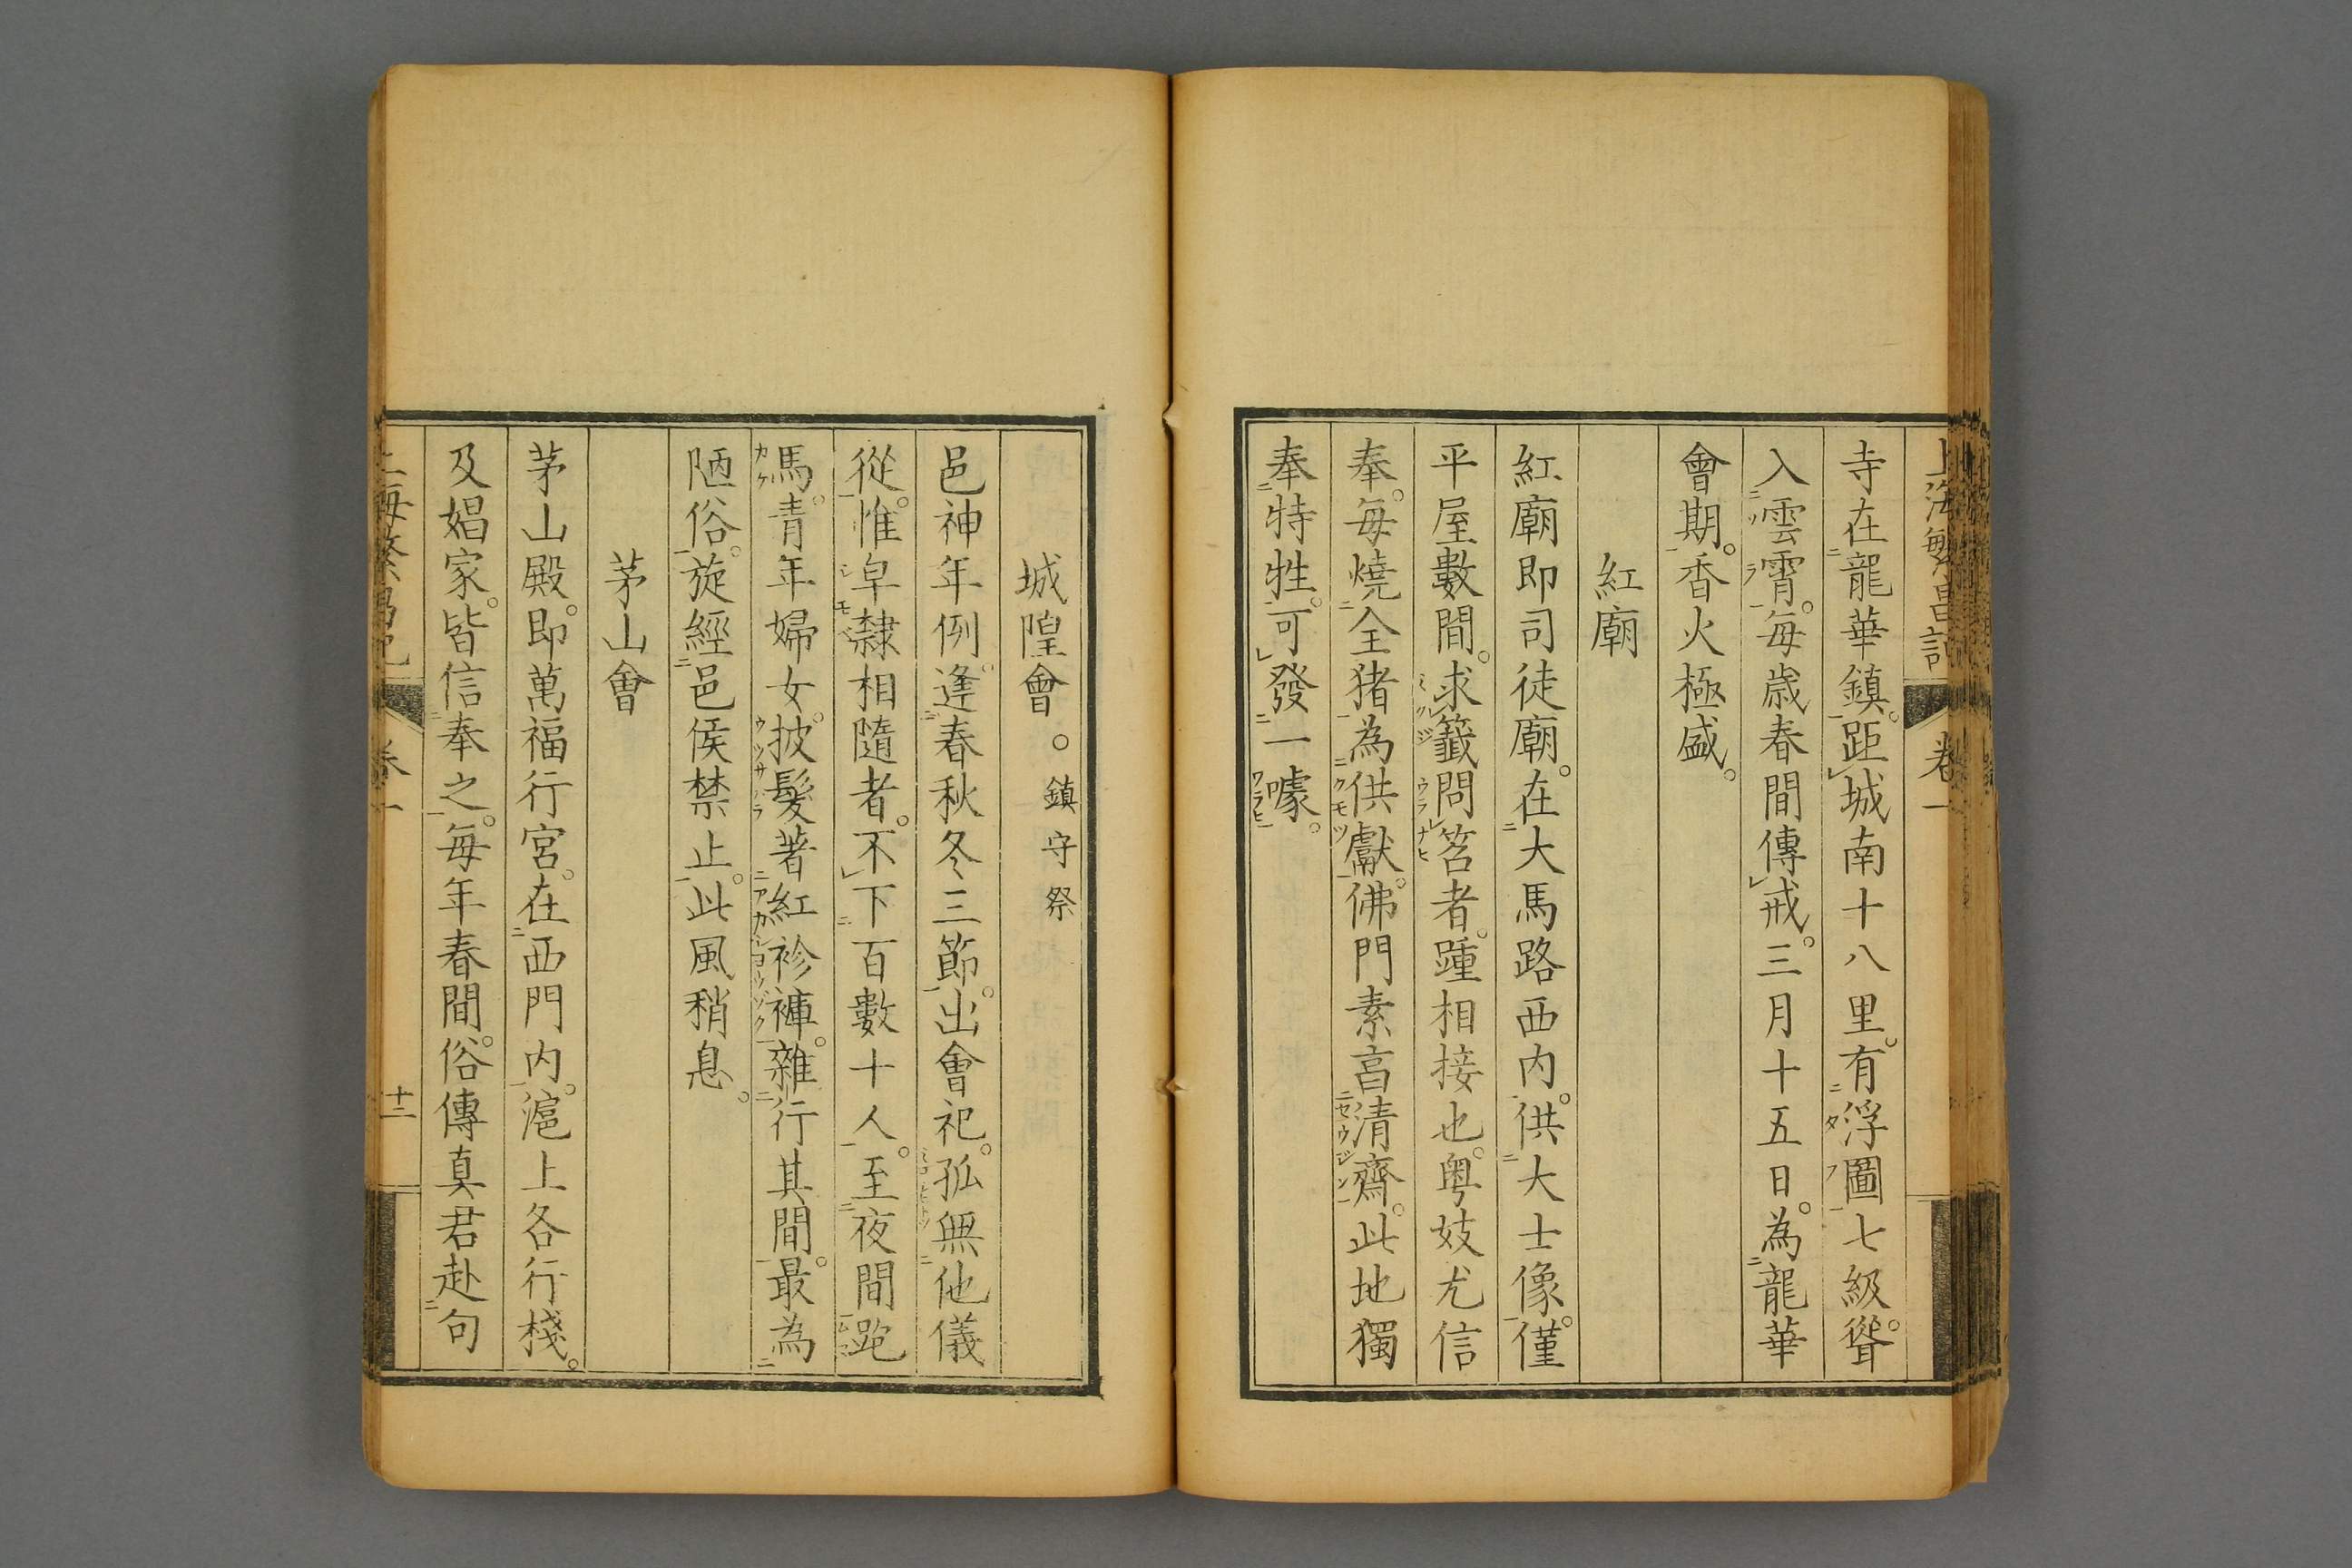 上海繁昌記 卷一
寺在龍華鎮。距城南十八里。有浮圖七級。聳
入雲霄。每歲春間傳戒。三月十五日。為龍華
會期。香火極盛。
紅廟
紅廟即司徒廟。在大馬路西內。供大士像。僅
平屋數間。求籤問笤者。踵相接也。粵妓尤信
奉。每燒全猪為供獻。佛門素言清齋。此地獨
奉特牲。可發一噱。
城隍會。鎮守祭
邑神年例。逢春秋冬三節。出會祀孤。無他儀
從。惟皁隸相隨者。不下百數十人。至夜間跑
馬。青年婦女。披髮著紅衫褲。雜行其間。最為
陋俗。旋經邑侯禁止。此風稍息。
茅山會
茅山殿。即萬福行宮。在西門內。滬上各行棧。
及娼家。皆信奉之。每年春間。俗傳真君赴句
上海繁昌記 卷一 十二